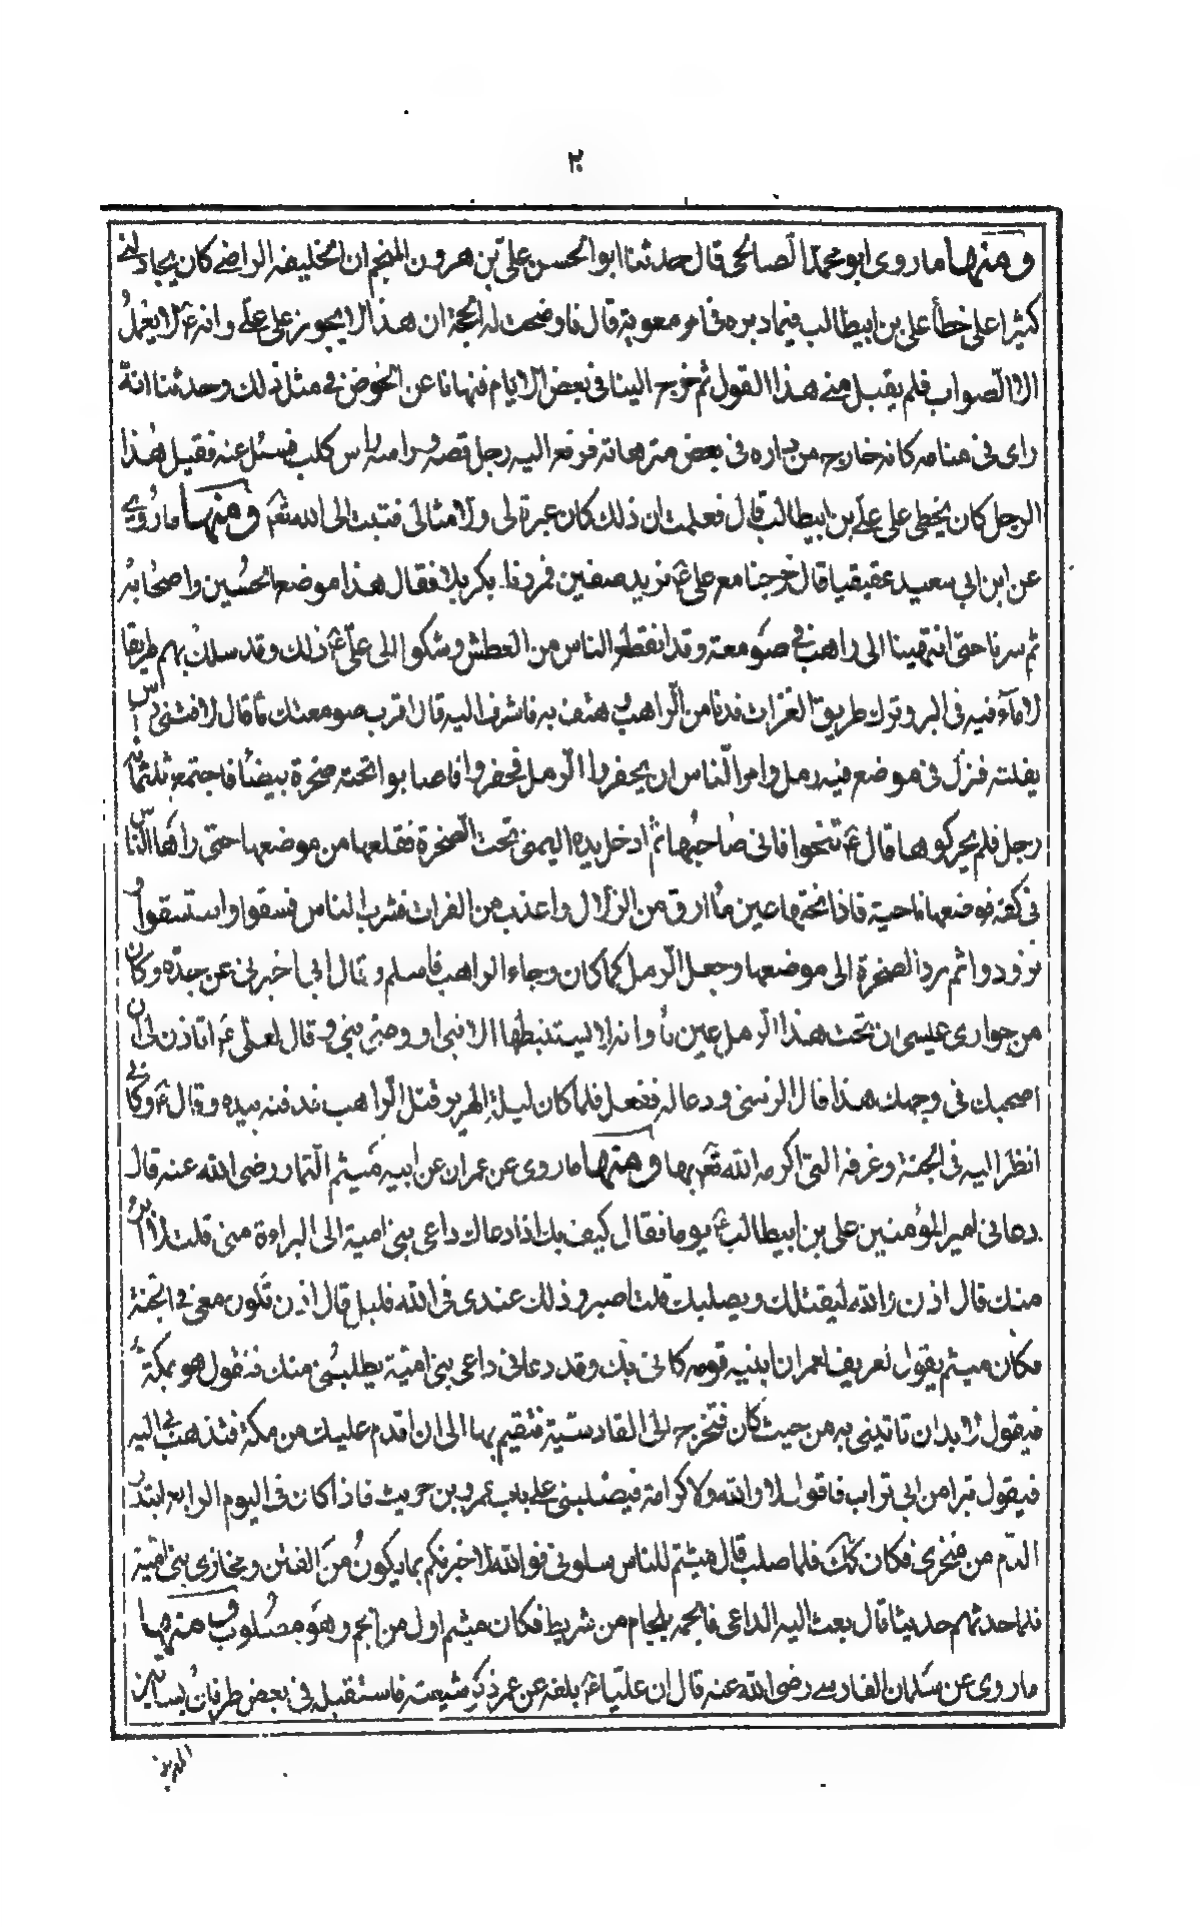 ٢٠
ومنها ما روى ابو محمد الصالحى قال حدثنا ابو الحسن على بن هرون المنجم ان الخليفة الراضى كان يجادلنى
كثيرا على خطأ على بن ابيطالب فيما دبره فى امر معوية قال فاوضحت له الحجة ان هذا لا يجوز على على وانه ع لا يعمل
الا الصواب فلم يقبل منى هذا القول ثم خرج الينا فى بعض الايام فنهانا عن الخوض فى مثل ذلك وحدثنا انه
راى فى منامه كانه خارج من داره فى بعض متنزهاته فرفع اليه رجل قصه وراسه راس كلب فسئل عنه فقيل هذا
الرجل كان يخطى على على بن ابيطالب قال فعلمت ان ذلك كان عبرة لى ولامثالى فتبت الى الله تعٓ ومنها ما روى
عن ابن ابى سعيد عقيقيا قال خرجنا مع على ع نريد صفين فمررنا بكربلا فقال هذا موضع الحسين واصحابه
ثم سرنا حتى انتهينا الى راهب فى صومعته وقد انقطع الناس من العطش وشكوا الى على ع ذلك وقد سلك بهم طريقا
لا ماء فيه فى البر وترك طريق الفرات فدنا من الراهب هتف به فاشرف اليه قال اقرب صومعتك ماء قال لا فثنى راس
بغلته فنزل فى موضع فيه رمل وامر الناس ان يحفروا الرمل فحفروا فاصابوا تحته صخرة بيضا فاجتمع ثلثمائة
رجل فلم يحركوها قال ع تنحوا فانى صاحبها ثم ادخل يده اليمنى تحت الصخرة فقلعها من موضعها حتى راها الناس
فى كفه فوضعها ناحية فاذا تحتها عين ماء ارق من الزلال واعذب من الفرات فشرب الناس فسقوا واستسقوا
تزودوا ثم رد الصخرة الى موضعها وجعل الرمل كما كان وجاء الراهب فاسلم وقال ابى اخبرنى عن جده وكان
من حوارى عيسى ان تحت هذا الرمل عين ماء وانه لا يستنبطها الا نبى او وصى نبى وقال لعلى ع اتاذن لى ان
اصحبك فى وجهك هذا قال الزمنى ودعا له ففعل فلما كان ليلة الهرير قتل الراهب فدفنه بيده وقال ع وكانى
انظر اليه فى الجنة وغرفه التى اكرمه الله تعٓ بها ومنها ما روى عن عمران عن ابيه ميثم التمار رضى الله عنه قال
دعانى امير المؤمنين على بن ابيطالب ع يوما فقال كيف بك اذا دعاك داعى بنى امية الى البراءة منى قلت لا ابرء
منك قال اذن والله ليقتلك ويصلبك قلت اصبر وذلك عندى فى الله قليل قال اذن تكون معى فى الجنة
فكان ميثم يقول لعريف لعمران ابنيه قومه كانى بك وقد دعانى داعى بنى امية يطلبنى منك فتقول هو بمكة
فيقول لا بد ان تاتينى به من حيث كان فتخرج الى القادسية فتقيم بها الى ان اقدم عليك من مكة فتذهب بى اليه
فيقول تبرا من ابى تراب فاقول لا والله ولا كرامة فيصلبنى على باب عمرو بن حريث فاذا كان فى اليوم الرابع ابتدر
الدم من منخرى فكان كك فلما صلب قال ميثم للناس سلونى فوالله لاخبرنكم بما يكون من الفتن ومخازى بنى امية
فلما حدثهم حديثا قال بعث اليه الداعى فالجمه بلجام من شريط فكان ميثم اول من الجم وهو مصلوب ومنها
ما روى عن سلمان الفارسى رضى الله عنه قال ان عليا ع بلغه عن عمر ذكر شيعته فاستقبله فى بعض طرقات بساتين
المدينة